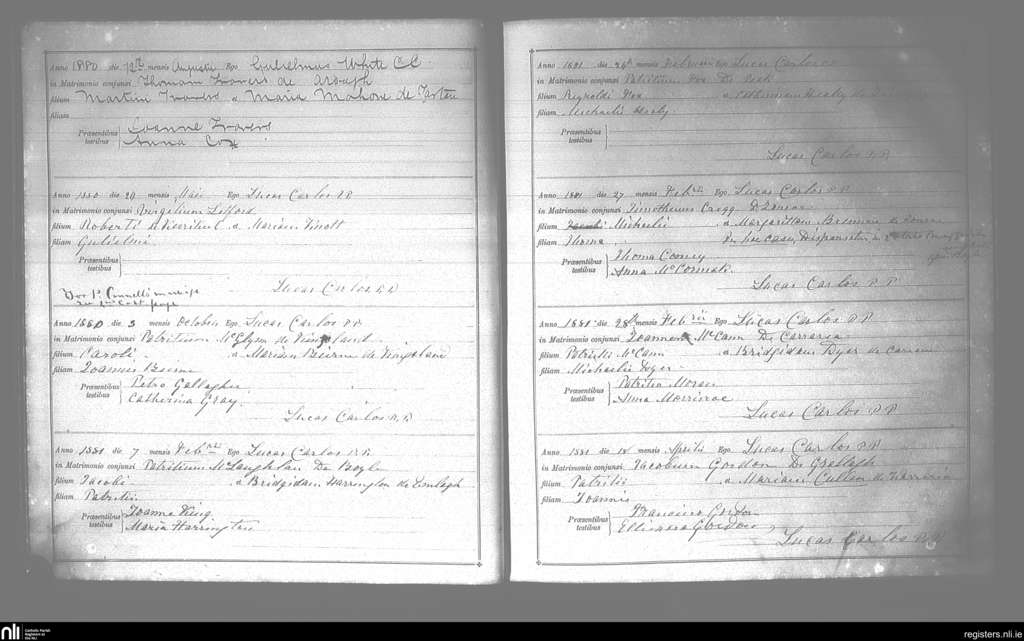 Anno 1880 die 12th mensis Augusti Ego Gulielmus White CC
in Matrimonio conjunxi Thomam Travers de Ardagh
filium Martini Travers a Maria Mahon de
filiam
Præsentibus testibus
Joanne Travers
Anna Cox
Anno 1880 die 29 mensis Maii Ego Lucas Carlos P.P.
in Matrimonio conjunxi Virgilium Lefford
filium Roberti a Mariam Knott
filiam Gulielmi
Præsentibus testibus
Lucas Carlos P.P.
For P. Connell's marriage
see last page
Anno 1880 die 3 mensis Octobris Ego Lucas Carlos P.P.
in Matrimonio conjunxi Patritium McGlynn de
filium Caroli a Mariam Beirne de
filiam Joannis Beirne
Præsentibus testibus
Petro Gallagher
Catherina Gray
Lucas Carlos P.P.
Anno 1881 die 7 mensis Feb Ego Lucas Carlos P.P.
in Matrimonio conjunxi Patritium McLaughlan De Boyle
filium Jacobi a Bridgidam Harrington de
filiam Patritii
Præsentibus testibus
Joanne King
Maria Harrington
Anno 1881 die 26th mensis Ego Lucas Carlos
in Matrimonio conjunxi Patritium Fox De
filium Reynoldi Fox a Catherinam Healy de
filiam Michaelis Healy
Præsentibus testibus
Lucas Carlos P.P.
Anno 1881 die 27 mensis Feb Ego Lucas Carlos P.P.
in Matrimonio conjunxi Timotheum Cregg
filium Michaelis a Margaritam Brennan de
filiam Thoma In hoc casu, Dispensatum in
Præsentibus testibus
Thoma Cooney
Anna McCormak
Lucas Carlos P.P.
Anno 1881 die 28th mensis Feb Ego Lucas Carlos P.P.
in Matrimonio conjunxi Joannem McCann De
filium Patritii McCann a Bridgidam Dyer de
filiam Michaelis Dyer
Præsentibus testibus
Patritio Moran
Anna Morrisroe
Lucas Carlos P.P.
Anno 1881 die 18 mensis Aprilis Ego Lucas Carlos P.P.
in Matrimonio conjunxi Jacobum Gordon De Grallagh
filium Patritii a Mariam Cullen de
filiam Joannis
Præsentibus testibus
Francisco Gordon
Gordon
Lucas Carlos P.P.
nli Catholic Parish Registers at the NLI
registers.nli.ie